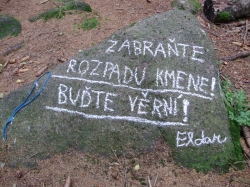 ZABRAŇTE
ROZPADU KMENE!
BUĎTE VĚRNI!
Eldar